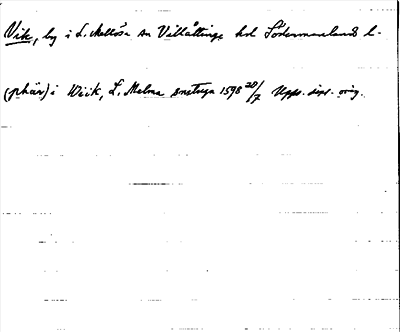 Vik, by i L. Mellösa sn Villåttinge hd Södermanlands l.
(på här) i Wiik, L. Melosa 1598 20/7 Upps. dipl. orig.